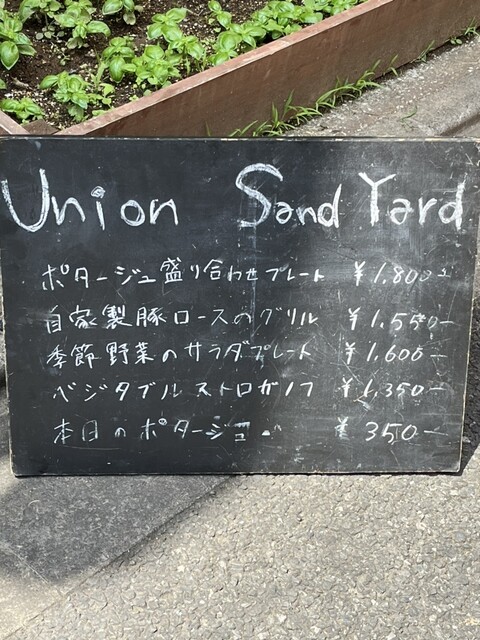 Union Sand Yard
ポタージュ盛り合わせプレート ¥1,800-
自家製豚ロースのグリル ¥1,550-
季節野菜のサラダプレート ¥1,600-
ベジタブルストロガノフ ¥1,350-
本日のポタージュ ¥350-